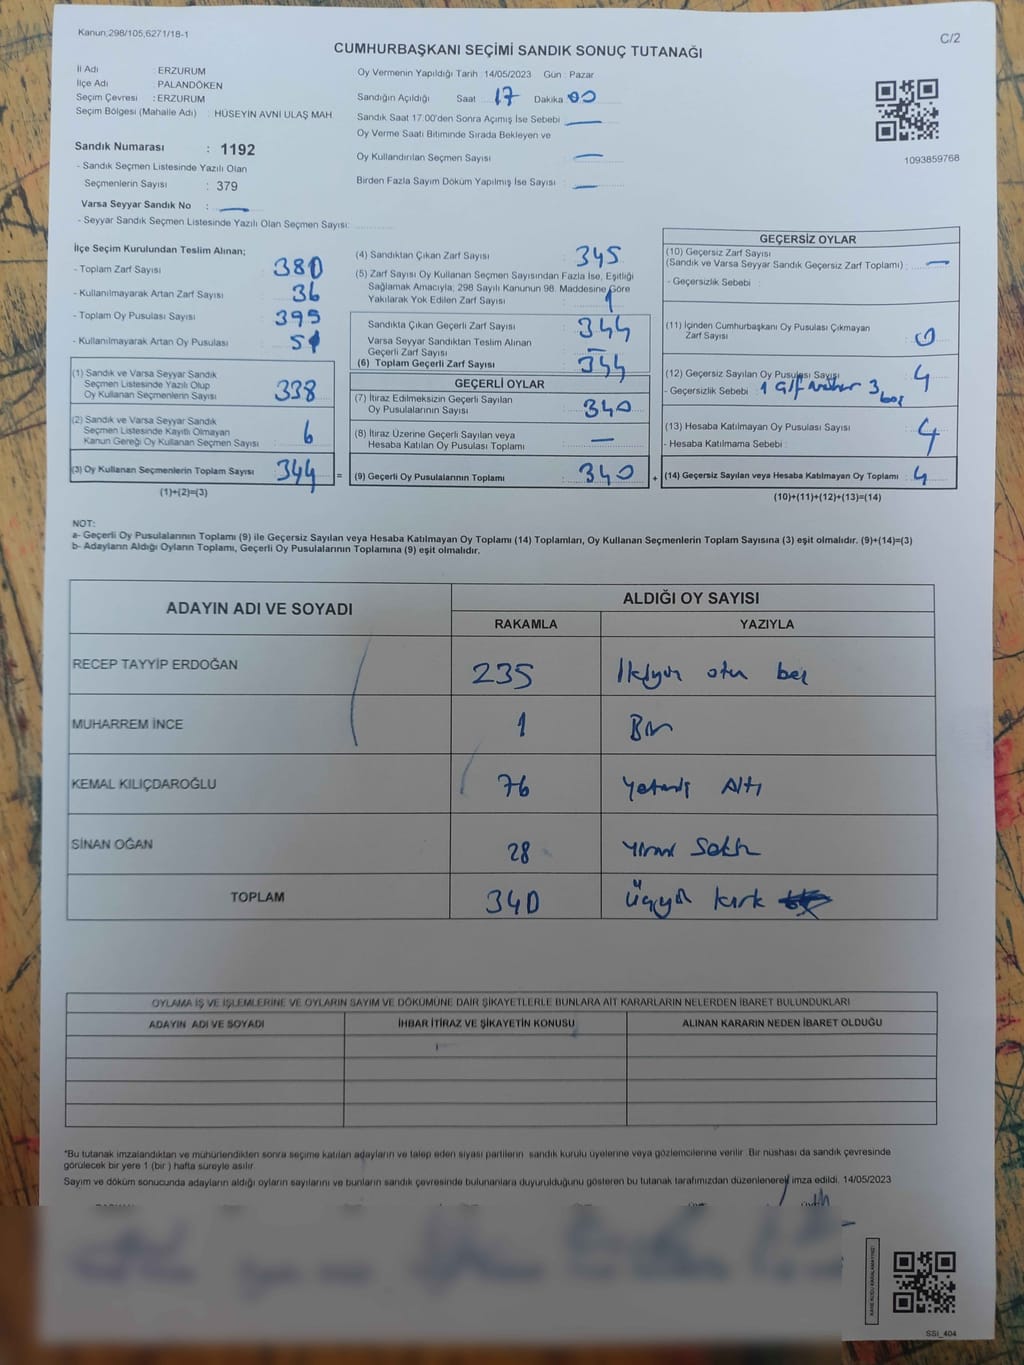 Kanun;298/105,6271/18-1
C/2
CUMHURBAŞKANI SEÇİMİ SANDIK SONUÇ TUTANAĞI
İl Adı : ERZURUM
İlçe Adı : PALANDÖKEN
Seçim Çevresi : ERZURUM
Seçim Bölgesi (Mahalle Adı) : HÜSEYİN AVNİ ULAŞ MAH.
Sandık Numarası : 1192
- Sandık Seçmen Listesinde Yazılı Olan
Seçmenlerin Sayısı : 379
Varsa Seyyar Sandık No :
- Seyyar Sandık Seçmen Listesinde Yazılı Olan Seçmen Sayısı:
Oy Vermenin Yapıldığı Tarih :14/05/2023 Gün : Pazar
Sandığın Açıldığı Saat 17 Dakika 00
Sandık Saat 17:00'den Sonra Açımış İse Sebebi
Oy Verme Saati Bitiminde Sırada Bekleyen ve
Oy Kullandırılan Seçmen Sayısı
Birden Fazla Sayım Döküm Yapılmış İse Sayısı :
1093859768
İlçe Seçim Kurulundan Teslim Alınan;
- Toplam Zarf Sayısı 380
- Kullanılmayarak Artan Zarf Sayısı 36
- Toplam Oy Pusulası Sayısı 395
- Kullanılmayarak Artan Oy Pusulası 51
(1) Sandık ve Varsa Seyyar Sandık
Seçmen Listesinde Yazılı Olup
Oy Kullanan Seçmenlerin Sayısı 338
(2) Sandık ve Varsa Seyyar Sandık
Seçmen Listesinde Kayıtlı Olmayan
Kanun Gereği Oy Kullanan Seçmen Sayısı : 6
(3) Oy Kullanan Seçmenlerin Toplam Sayısı 344 =
(1)+(2)=(3)
(4) Sandıktan Çıkan Zarf Sayısı 345
(5) Zarf Sayısı Oy Kullanan Seçmen Sayısından Fazla İse, Eşitliği
Sağlamak Amacıyla, 298 Sayılı Kanunun 98. Maddesine Göre
Yakılarak Yok Edilen Zarf Sayısı : 1
Sandıkta Çıkan Geçerli Zarf Sayısı : 344
Varsa Seyyar Sandıktan Teslim Alınan
Geçerli Zarf Sayısı
(6) Toplam Geçerli Zarf Sayısı : 344
GEÇERLİ OYLAR
(7) İtiraz Edilmeksizin Geçerli Sayılan
Oy Pusulalarının Sayısı : 340
(8) İtiraz Üzerine Geçerli Sayılan veya
Hesaba Katılan Oy Pusulası Toplamı :
(9) Geçerli Oy Pusulalarının Toplamı : 340 +
GEÇERSİZ OYLAR
(10) Geçersiz Zarf Sayısı
(Sandık ve Varsa Seyyar Sandık Geçersiz Zarf Toplamı) :
- Geçersizlik Sebebi :
(11) İçinden Cumhurbaşkanı Oy Pusulası Çıkmayan
Zarf Sayısı : 0
(12) Geçersiz Sayılan Oy Pusulası Sayısı 4
- Geçersizlik Sebebi : 1 3 boş
(13) Hesaba Katılmayan Oy Pusulası Sayısı : 4
- Hesaba Katılmama Sebebi :
(14) Geçersiz Sayılan veya Hesaba Katılmayan Oy Toplamı : 4
(10)+(11)+(12)+(13)=(14)
NOT:
a- Geçerli Oy Pusulalarının Toplamı (9) ile Geçersiz Sayılan veya Hesaba Katılmayan Oy Toplamı (14) Toplamları, Oy Kullanan Seçmenlerin Toplam Sayısına (3) eşit olmalıdır. (9)+(14)=(3)
b- Adayların Aldığı Oyların Toplamı, Geçerli Oy Pusulalarının Toplamına (9) eşit olmalıdır.
ADAYIN ADI VE SOYADI
ALDIĞI OY SAYISI
RAKAMLA YAZIYLA
RECEP TAYYİP ERDOĞAN 235 İkiyüz otuz beş
MUHARREM İNCE 1 Bir
KEMAL KILIÇDAROĞLU 76 Yetmiş Altı
SİNAN OĞAN 28 yirmi Sekiz
TOPLAM 340 üçyüz kırk
OYLAMA İŞ VE İŞLEMLERİNE VE OYLARIN SAYIM VE DÖKÜMÜNE DAİR ŞİKAYETLERLE BUNLARA AİT KARARLARIN NELERDEN İBARET BULUNDUKLARI
ADAYIN ADI VE SOYADI İHBAR İTİRAZ VE ŞİKAYETİN KONUSU ALINAN KARARIN NEDEN İBARET OLDUĞU
*Bu tutanak imzalandıktan ve mühürlendikten sonra seçime katılan adayların ve talep eden siyasi partilerin sandık kurulu üyelerine veya gözlemcilerine verilir. Bir nüshası da sandık çevresinde
görülecek bir yere 1 (bir) hafta süreyle asılır.
Sayım ve döküm sonucunda adayların aldığı oyların sayılarını ve bunların sandık çevresinde bulunanlara duyurulduğunu gösteren bu tutanak tarafımızdan düzenlenerek imza edildi. 14/05/2023
KARE KODU KARALAMAYINIZ!
SSI_404